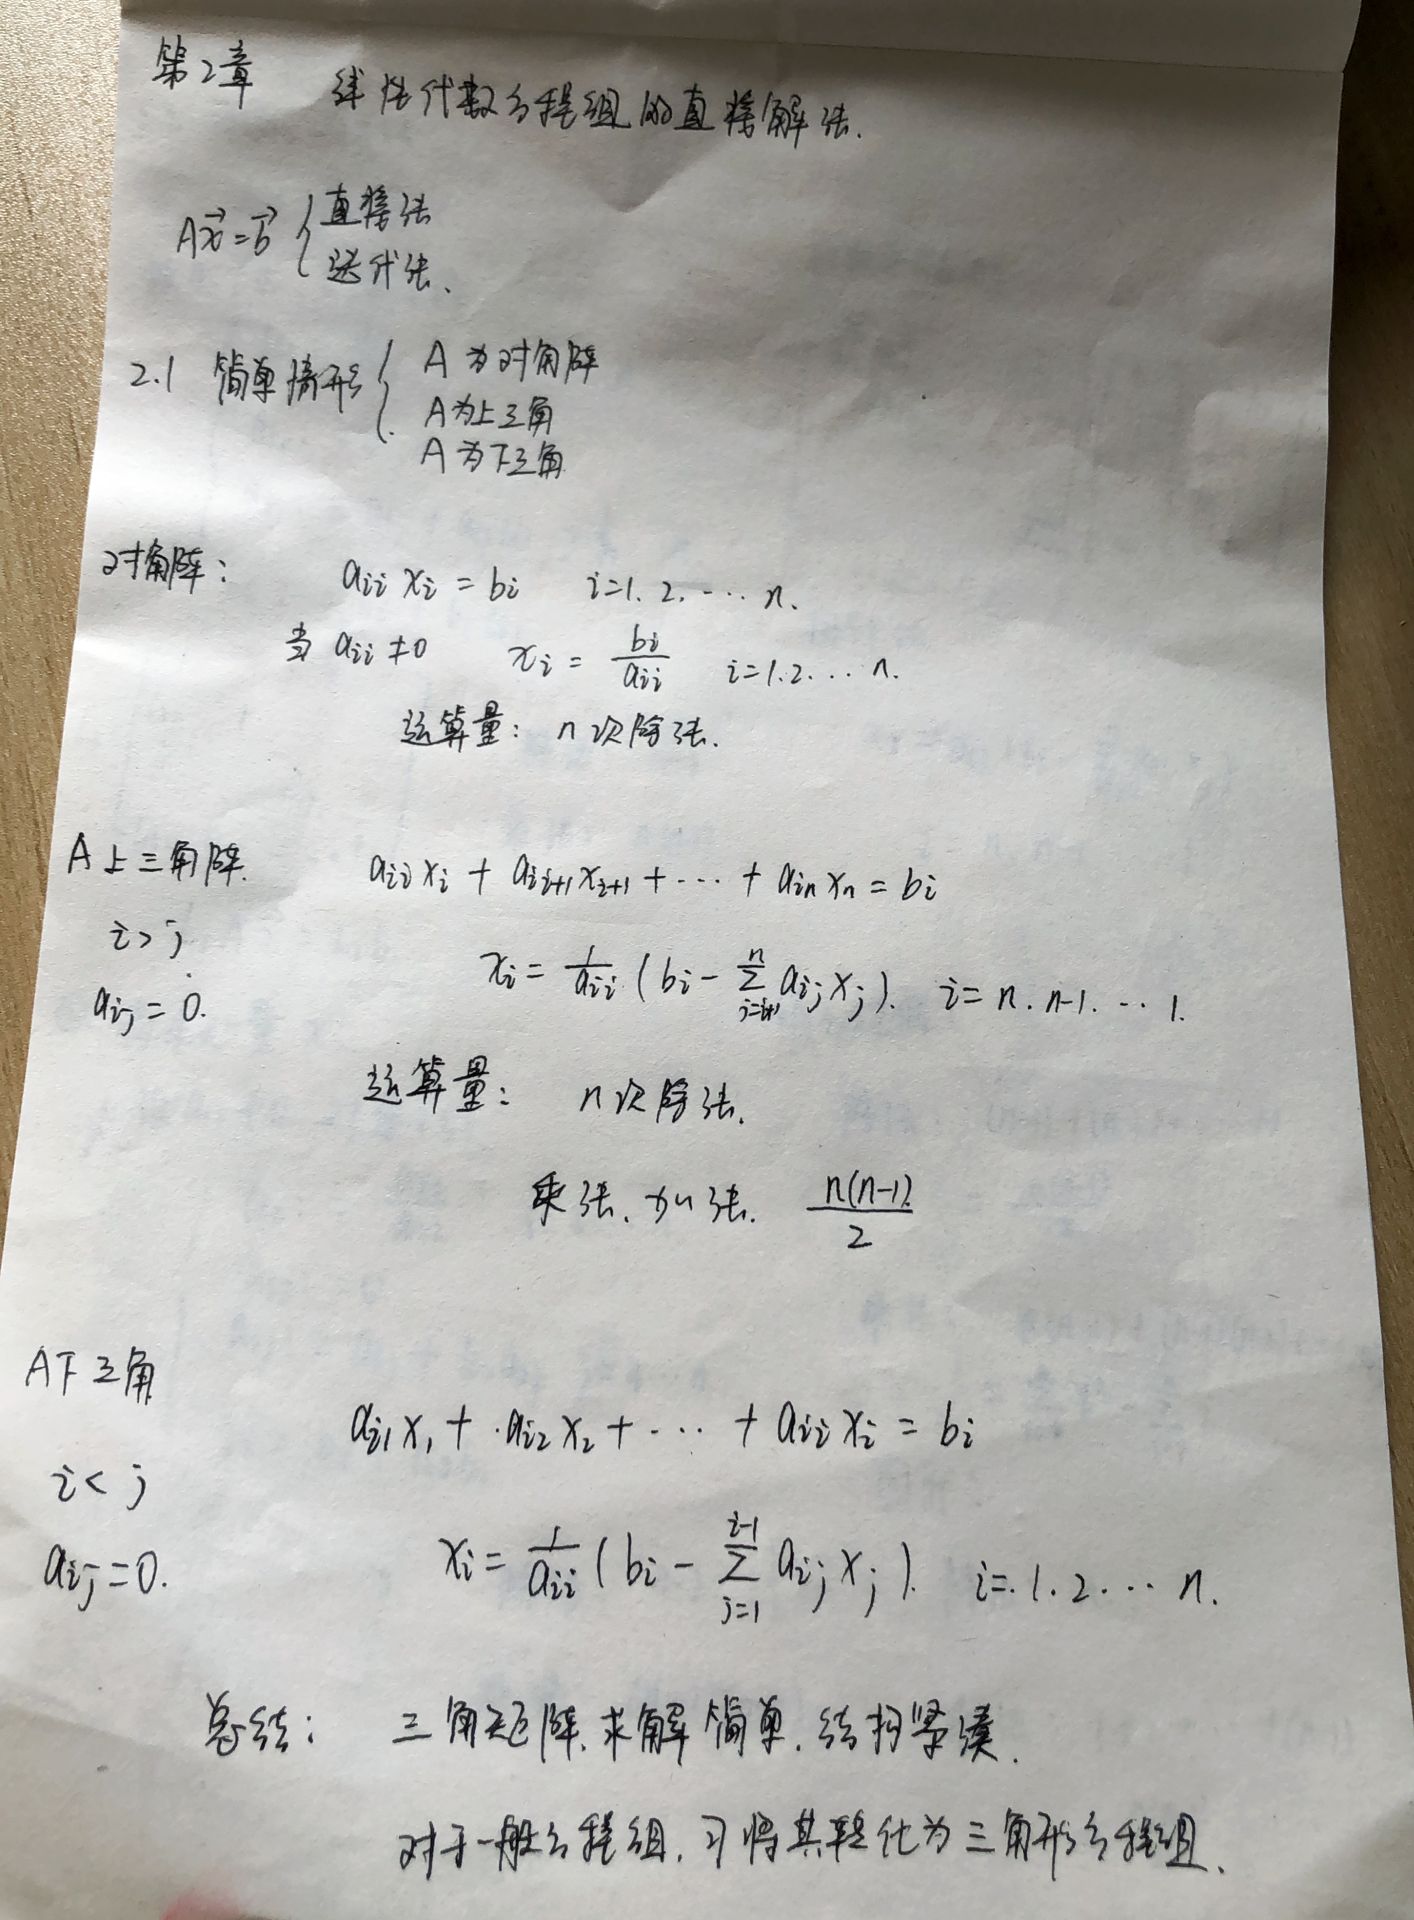 第2章 线性代数方程组的直接解法.
A\vec{x}=\vec{b} { 直接法
迭代法.
2.1 简单情形 { A为对角阵
A为上三角
A为下三角
对角阵: a_{ii} x_i = b_i  i=1. 2. ⋯ n.
当 a_{ii} ≠ 0  x_i = \frac{b_i}{a_{ii}}  i=1.2. ⋯ n.
运算量: n次除法.
A上三角阵. a_{ii} x_i + a_{ii+1} x_{i+1} + ⋯ + a_{in} x_n = b_i
i > j
x_i = \frac{1}{a_{ii}} ( b_i - \sum_{j=i+1}^{n} a_{ij} x_j ). i= n. n-1. ⋯ 1.
a_{ij} = 0.
运算量: n次除法.
乘法. 加法. \frac{n(n-1)}{2}
A下三角
a_{i1} x_1 + a_{i2} x_2 + ⋯ + a_{ii} x_i = b_i
i < j
x_i = \frac{1}{a_{ii}} ( b_i - \sum_{j=1}^{i-1} a_{ij} x_j ). i=.1.2 ⋯ n.
a_{ij} = 0.
总结: 三角矩阵.求解简单.结构紧凑.
对于一般方程组.可将其转化为三角形方程组.